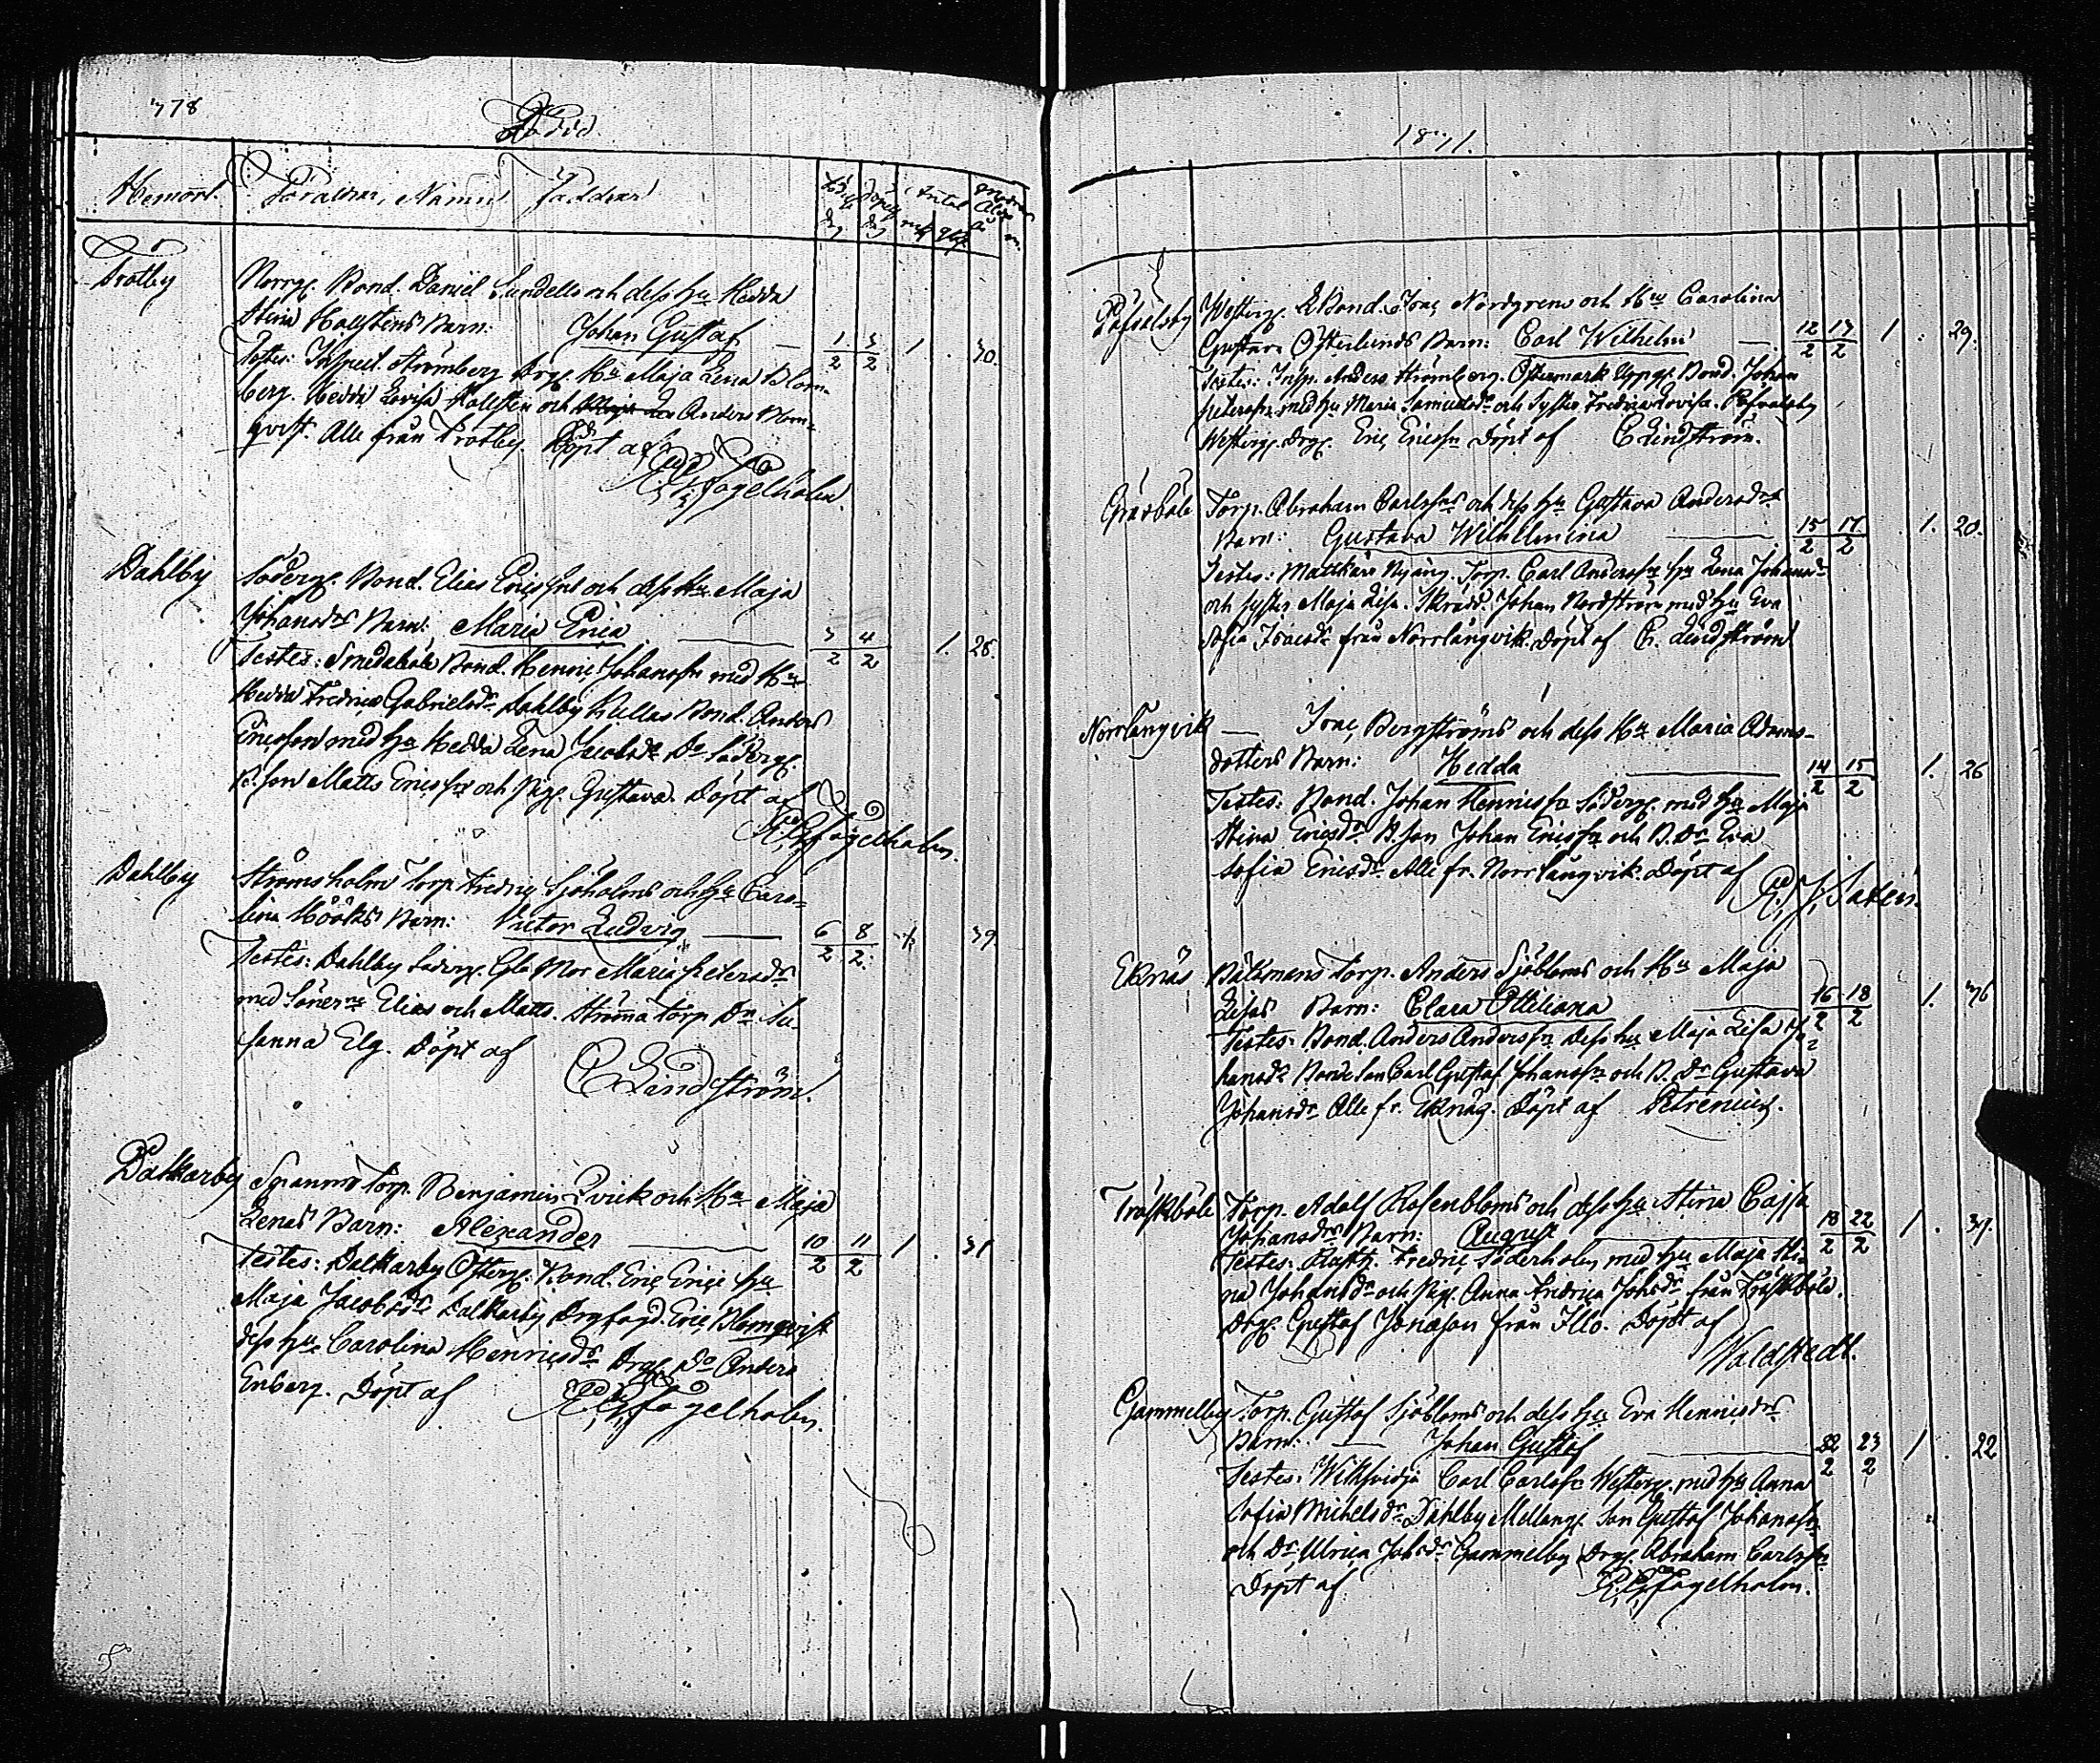 378
Födde
1871.
Hemort. Föräldrar, Namn Faddrar
Trotby Norrg. Bond. Daniel Sundells och dess Hu Hedda
Stina Hallstens Barn: Johan Gustaf 1/2 3/2 1 . 30.
Testes: Inspect. Strömberg Drg. Hu Maja Lena Blom-
berg. Hedda Lovisa Hallsten och Anders Blom-
qvist. Alla från Trotby. Döpt af
Fogelholm
Dahlby Söderg. Bond. Elias Ericssons och dess Hu. Maja
Johansdrs Barn: Maria Erica 3/2 4/2 1. 28.
Testes: Smedaböle Bond. Henric Johanssn med Hu
Hedda Fredrica Gabrielsdr. Dahlby Kullas Bond. Anders
Ericsson med Hu Hedda Lena Jacobsdr. Do Söderg.
B. son Matts Ericssn och Pig. Gustava. Döpt af
Fogelholm.
Dahlby Strömsholm Torp. Fredric Sjöholms och Hu Caro-
lina Hööks Barn: Victor Ludvig 6/2 8/2. 1. 39.
Testes: Dahlby Söderg. Gla Mor Maria Petersdr
med Sönerne Elias och Matts. Strömma Torp. Dr Su-
sanna Elg. Döpt af
C Lindström.
Dalkarby Torp. Benjamin Qvick och Hu Maja
Lenas Barn: Alexander 10/2 11/2 1 . 31
Testes: Dalkarby Österg. Bond. Eric Erici Hu
Maja Jacobsdr. Dalkarby Drgfogd. Eric Blomqvist
dess Hu. Carolina Henricsdr Drg. Do Anders
Enberg. Döpt af Fogelholm.
Westerg. Bond. Isac Nordgrens och Hu Carolina
Gustava Österlunds Barn: Carl Wilhelm 12/2 13/2 1 . 29.
Testes: Insp. Anders Strömberg. Östermark Uppg. Bond. Johan
Peterssn med Hu Maria Samuelsdr och Syster Fredrica Lovisa.
Westerg. Drg. Eric Ericssn Döpt af C Lindström.
Gräsböle Torp. Abraham Carlssns och dess Hu Gustava Andersdrs
Barn: Gustava Wilhelmina 15/2 17/2 1. 20.
Testes: Mattkärr Nyäng. Torp. Carl Anderssn Hu Lena Johansdr
och syster Maja Lisa. Skrädd. Johan Nordström med Hu Eva
Sofia Isacsdr från Norrlångvik. Döpt af C. Lindström
Norrlångvik — Isac Bergströms och dess Hu Maria Adams-
dotters Barn: Hedda 14/2 15/2 1. 26
Testes: Bond. Johan Henricssn Söderg. med Hu Maja
Stina Ericsdr B. son Johan Ericssn och B. Dr Eva
Sofia Ericsdr Alle fr. Norrlångvik. Döpt af
Saxén.
Ekenäs Båtsmans Torp. Anders Sjöbloms och Hu Maja
Lisas Barn: Clara Ottiliana 16/2 18/2 1. 36
Testes: Bond. Anders Anderssn dess Hu Maja Lisa Jo-
hansdr Bonde Son Carl Gustaf Johanssn och B. Dr Gustava
Johansdr Alle fr. Ekenäs. Döpt af Petrenius.
Träskböle Torp. Adolf Rosenbloms och dess Hu Stina Cajsa
Johansdrs Barn: August 18/2 22/2 1 . 37.
Testes: Fredric Söderholm med Hu Maja Sti-
na Johansdr och Pig. Anna Fredrica Johsdr från Träskböle.
Drg. Gustaf Jonasson från Illo. Döpt af
Waldstedt.
Gammelby Torp. Gustaf Sjöbloms och dess Hu Eva Henricsdrs
Barn: — Johan Gustaf 22/2 23/2 1 . 22
Testes: Wiksvidja Carl Carlssn Westerg. med Hu Anna
Sofia Michelsdr. Dahlby Mellang. Son Gustaf Johanssn
och Dr. Ulrica Johsdr Gammelby Drg. Abraham Carlssn
Döpt af Fogelholm.